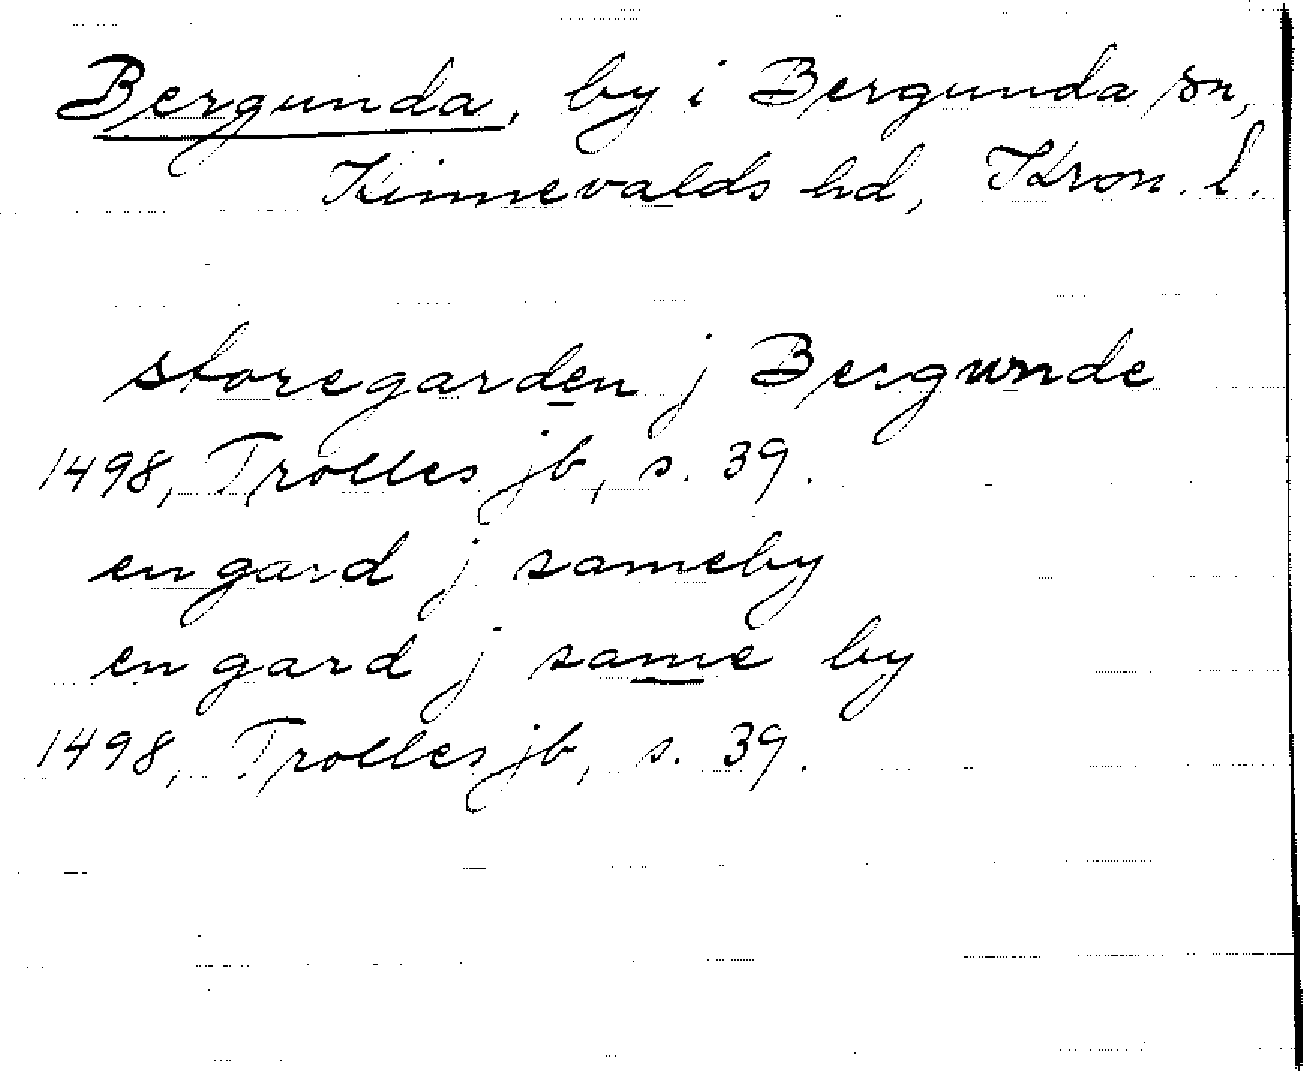 Bergunda, by i Bergunda sn,
Kinnevalds hd, Kron. l.
storegarden j Bergunde
1498, Trolles jb, s. 39.
en gard j sameby
en gard j same by
1498, Trolles jb, s. 39.